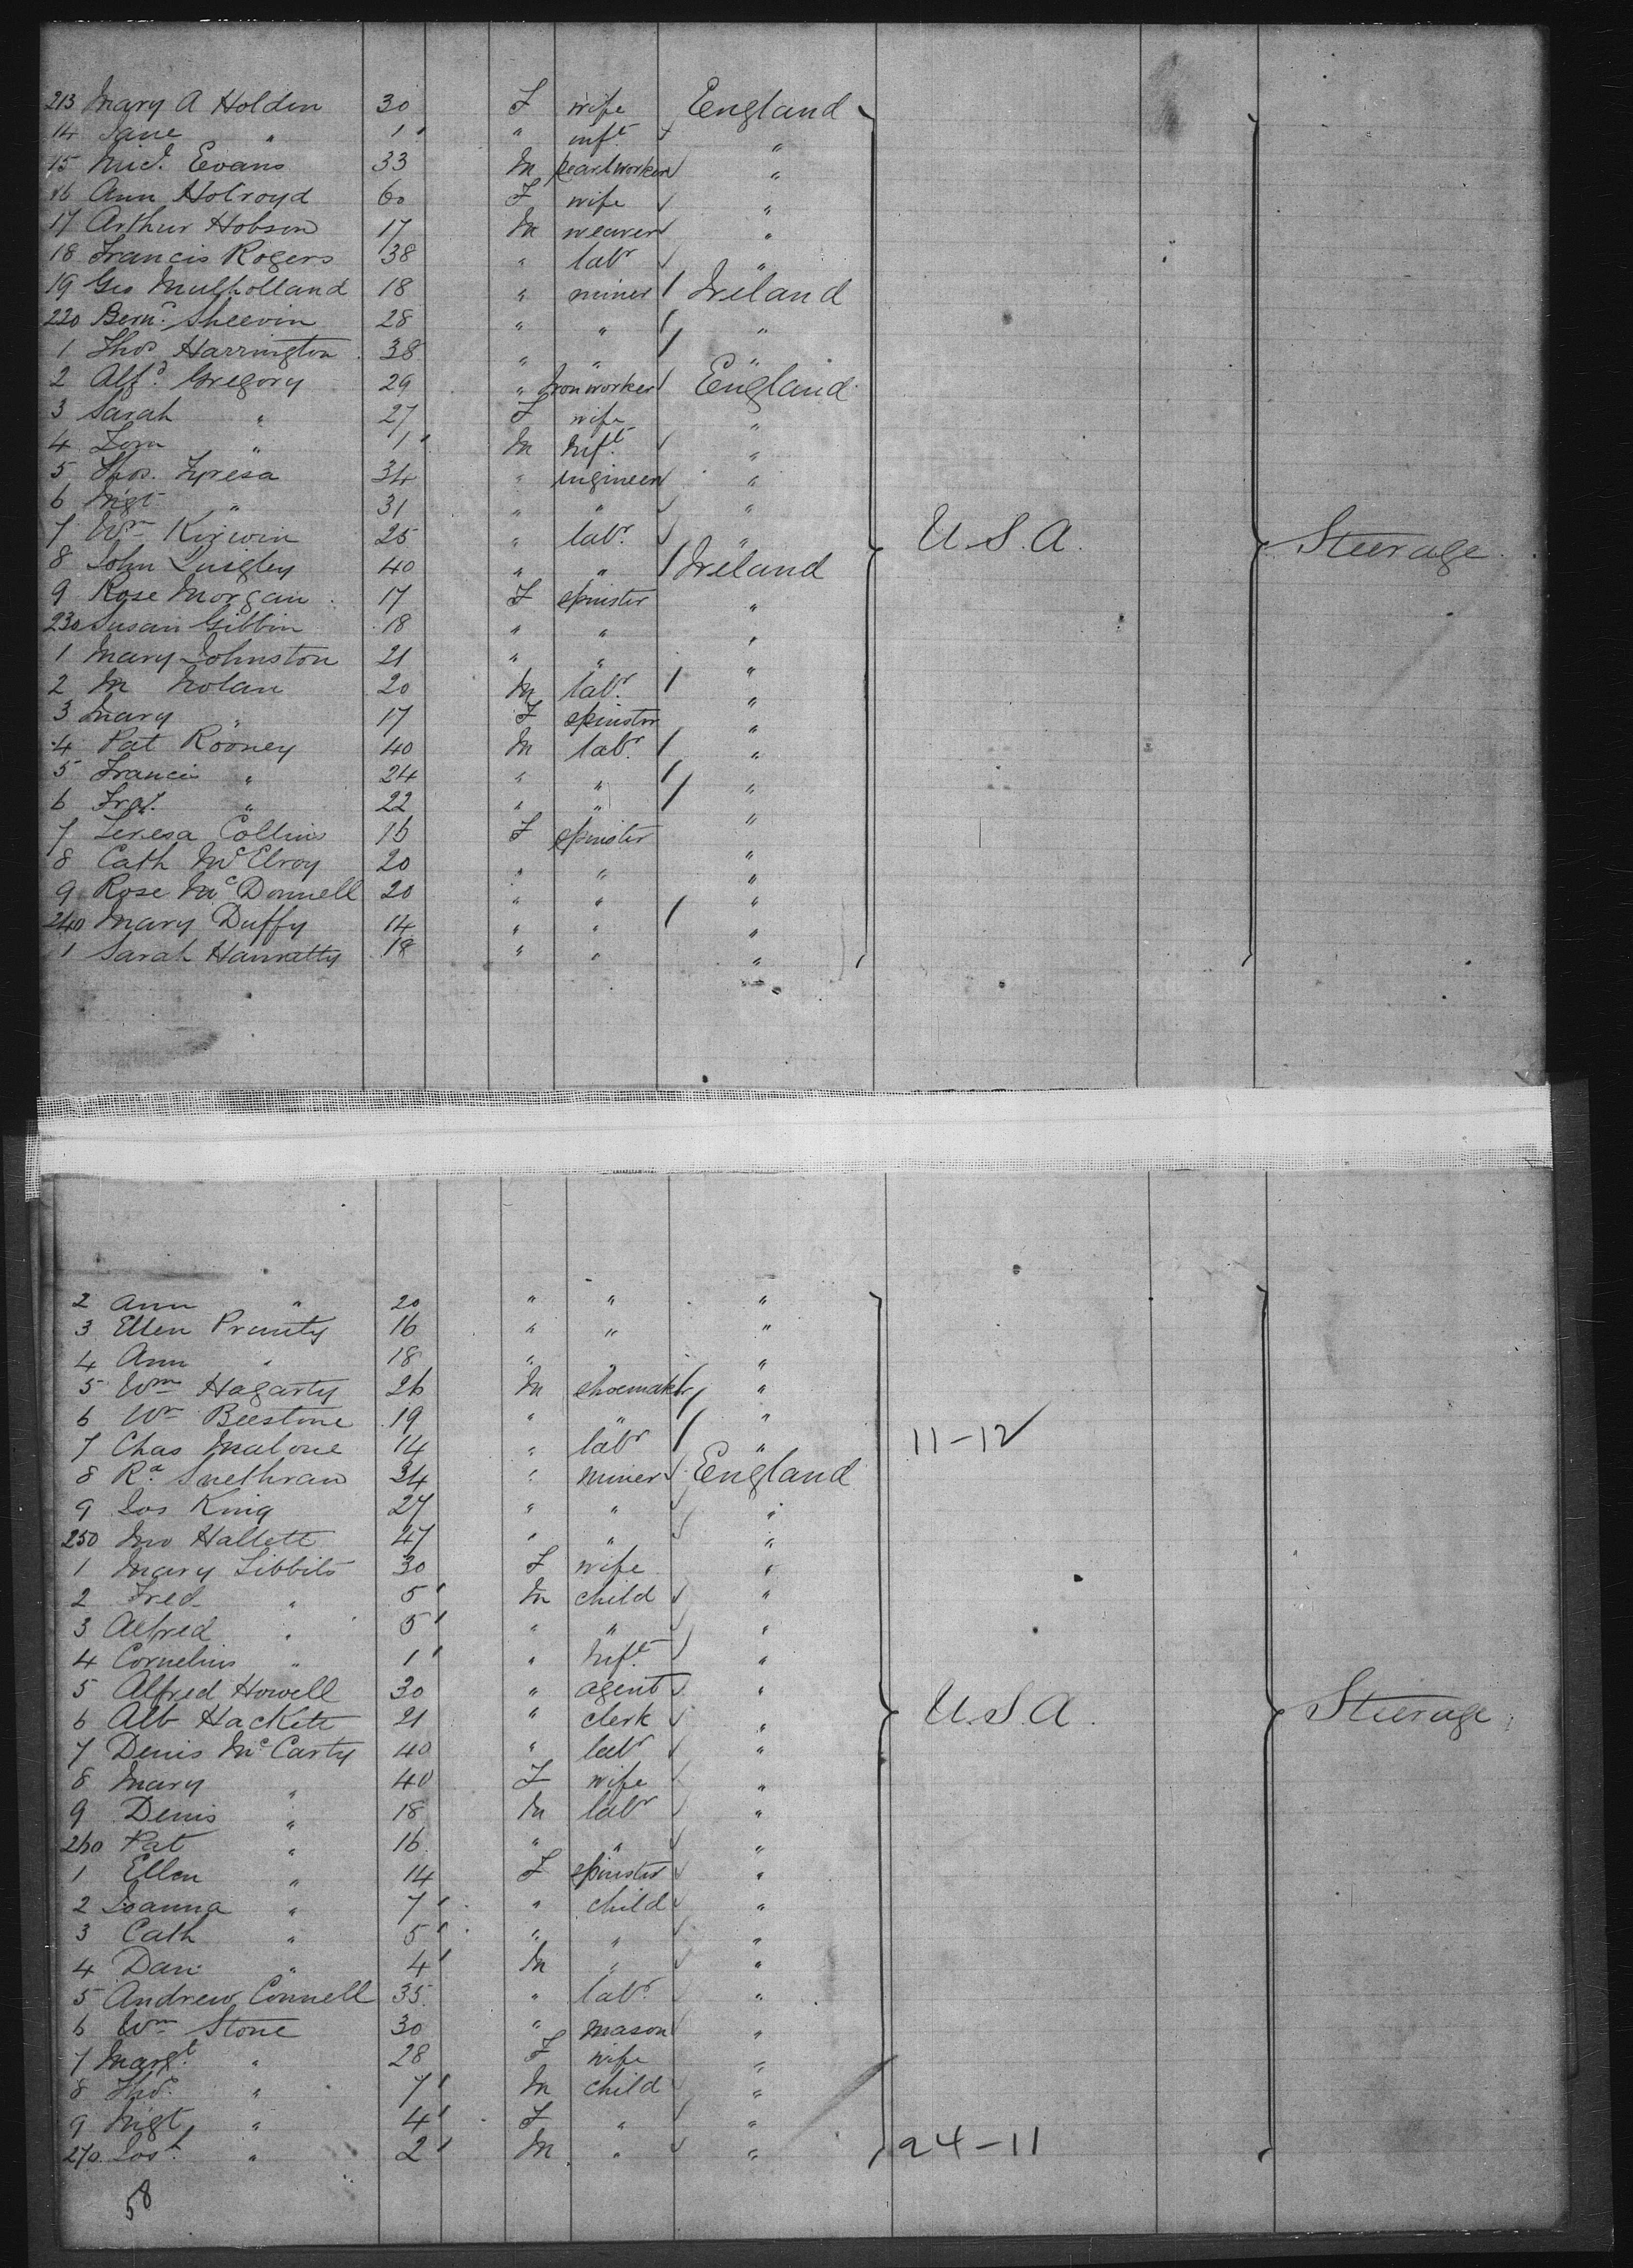 213 Mary A Holden 30 F wife England
14 Jane " 1' " inft "
15 Micl Evans 33 M pearlworker "
16 Ann Holroyd 60 F wife "
17 Arthur Hobson 17 M weaver "
18 Francis Rogers 38 " labr "
19 Geo Mulholland 18 " miner Ireland
220 Bernd Sheevin 28 " " "
1 Thos Harrington 38 " " "
2 Alfd Gregory 29 " Ironworker England
3 Sarah " 27 F wife "
4 Tom " 1' M Inft "
5 Thos. 34 " engineer "
6 Mgt " 31 " " "
7 Wm Kirwin 25 " labr. "
8 John Quigley 40 " " Ireland
9 Rose Morgan 17 F spinster "
230 Susan Gibbin 18 " " "
1 Mary Johnston 21 " " "
2 M Nolan 20 M labr. "
3 Mary " 17 F spinster "
4 Pat Rooney 40 M labr. "
5 Francis " 24 " " "
6 " 22 " " "
7 Teresa Collins 16 F spinster "
8 Cath McElroy 20 " " "
9 Rose McDonnell 20 " " "
240 Mary Duffy 14 " " "
1 Sarah Hanratty 18 " " "
U.S.A. Steerage
2 Ann " 20 " " "
3 Ellen Prunty 16 " " "
4 Ann " 18 " "
5 Wm Hagarty 26 M shoemaker "
6 Wm Beestone 19 " " "
7 Chas Malone 14 " labr " 11-12
8 Rd Snethran 34 " miner England
9 Jos King 27 " " "
250 Jno Hallett 47 " " "
1 Mary Tibbits 30 F wife "
2 Fred " 5' M child "
3 Alfred " 5' " " "
4 Cornelius " 1' " Inft. "
5 Alfred Howell 30 " agent "
6 Alb Hackett 21 " clerk "
7 Denis McCarty 40 " labr "
8 Mary " 40 F wife "
9 Denis " 18 M labr "
260 Pat " 16 " " "
1 Ellen " 14 F spinster "
2 Joanna " 7' " child "
3 Cath " 5' " " "
4 Dan " 4' M " "
5 Andrew Connell 35 " labr. "
6 Wm Stone 30 " mason "
7 Margt. " 28 F wife "
8 Thos. " 7' M child "
9 Mgt " 4' F " "
270 Josh " 2' M " " 24-11
U.S.A. Steerage
58